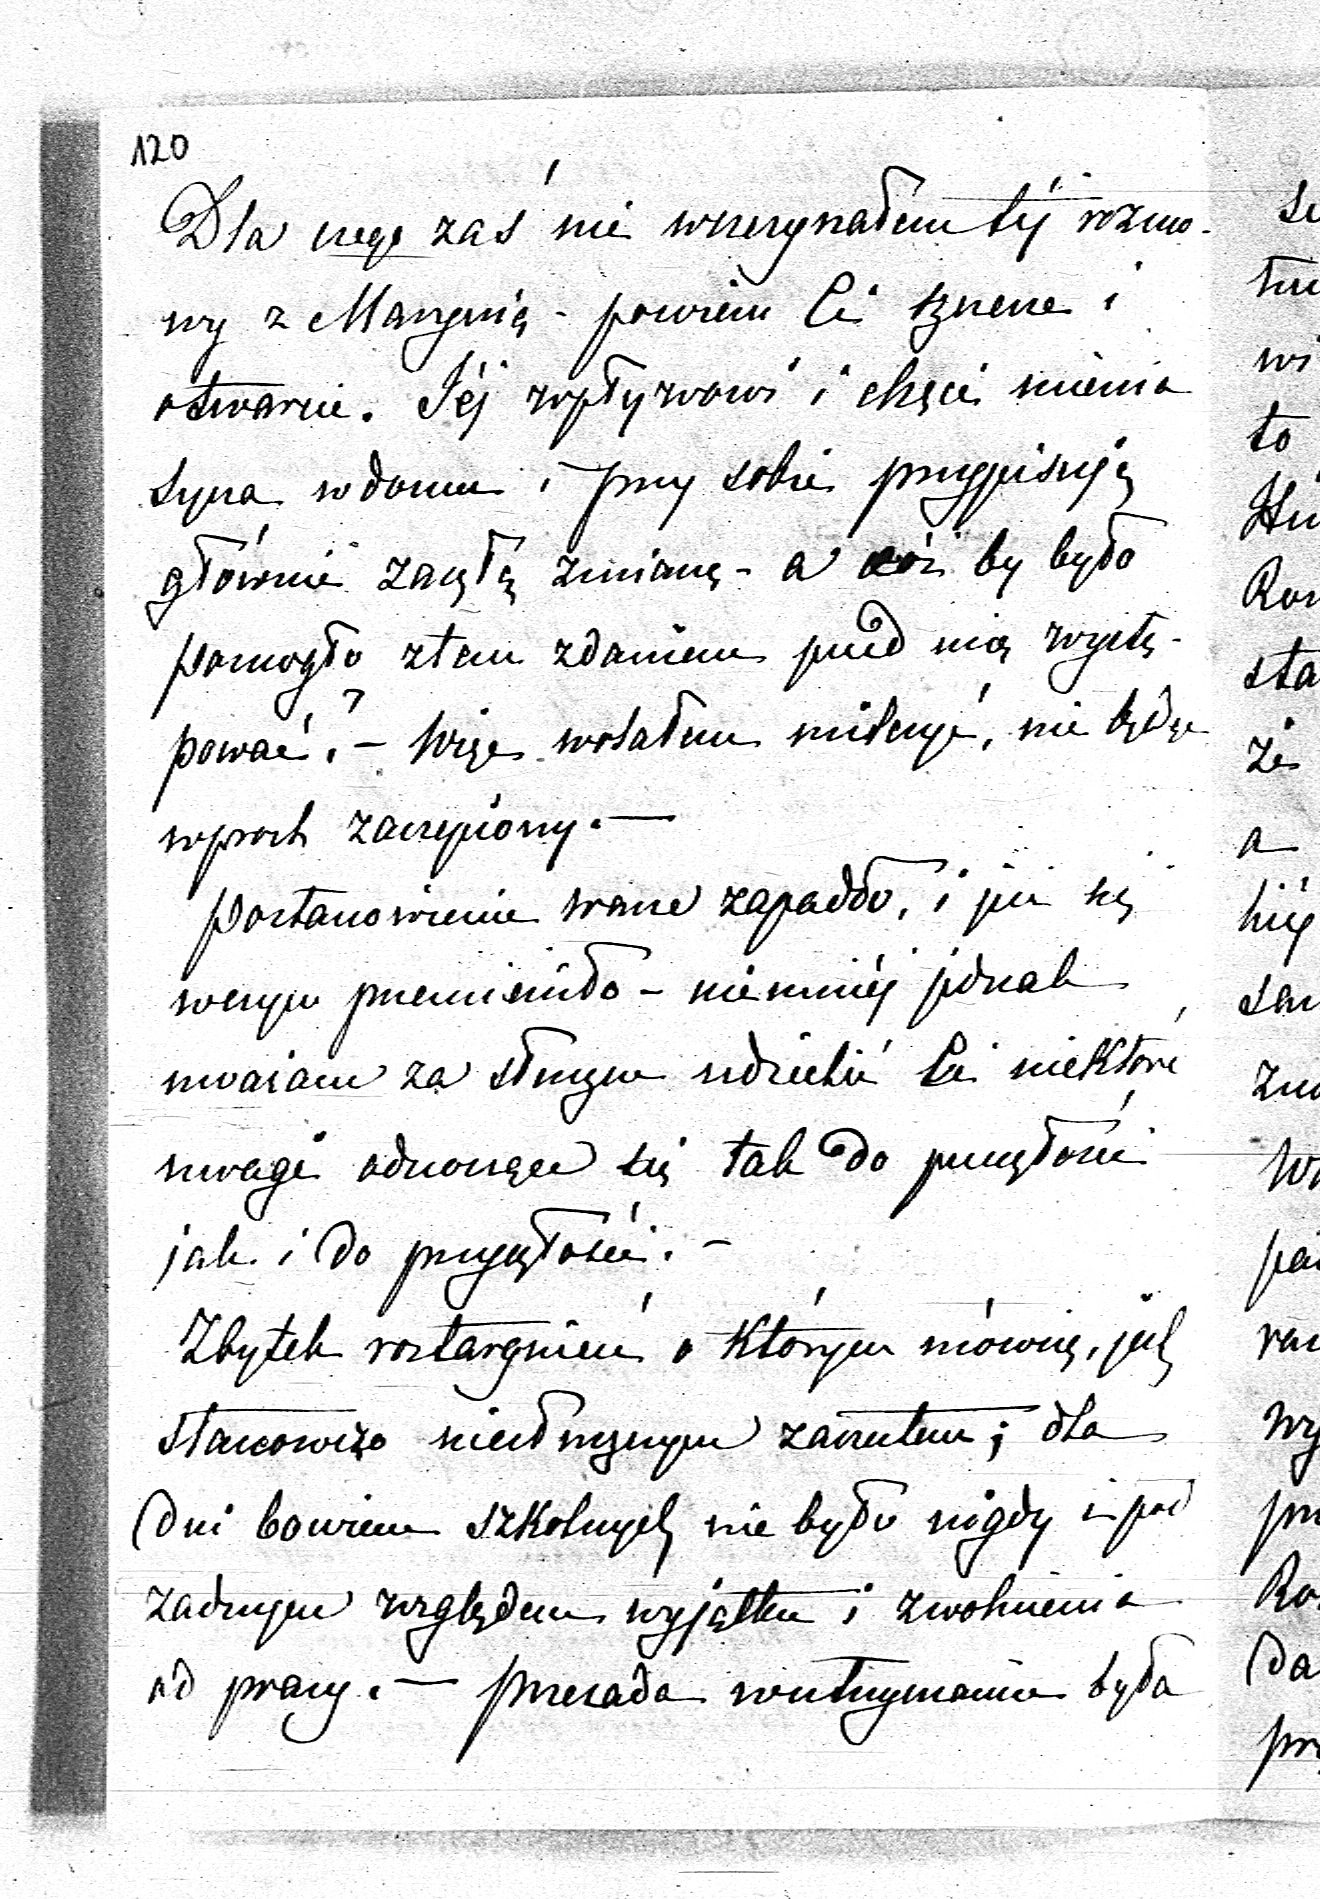 120
Dla czego zaś nie wszczynałem téj rozmo-
wy z Marynią - powiem Ci szczerze i
otwarcie. Jéj wpływowi i chęci mienia
syna w domu i przy sobie przypisuję
głównie zaszłą zmianę - a cóż by było
pomogło z tem zdaniem przed nią wystę-
pować? - Więc wolałem milczyć, nie będąc
wprost zaczepiony. -
Postanowienie wasze zapadło, i już się
w czyn przemieniło - niemniéj jednak
uważam za słuszne udzielić Ci niektóre
uwagi odnoszące się tak do przeszłości
jak i do przyszłości. -
Zbytek roztargnień o którym mówisz, jest
stanowczo niesłusznym zarzutem; dla
dni bowiem szkolnych nie było nigdy i pod
żadnym względem wyjątku i zwolnienia
od pracy. - Przesada w utrzymaniu była
se
wi
to
Ron
sta
że
a
wy
Ro
da